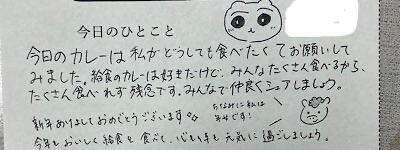 今日のひとこと
今日のカレーは私がどうしても食べたくてお願いして
みました。給食のカレーは好きだけど、みんなたくさん食べるから、
たくさん食べれず残念です。みんなで仲良くシェアしましょう。
新年あけましておめでとうございます。
ちなみに私は
年です!
今年もおいしく給食を食べて、心も体も元気に過ごしましょう。